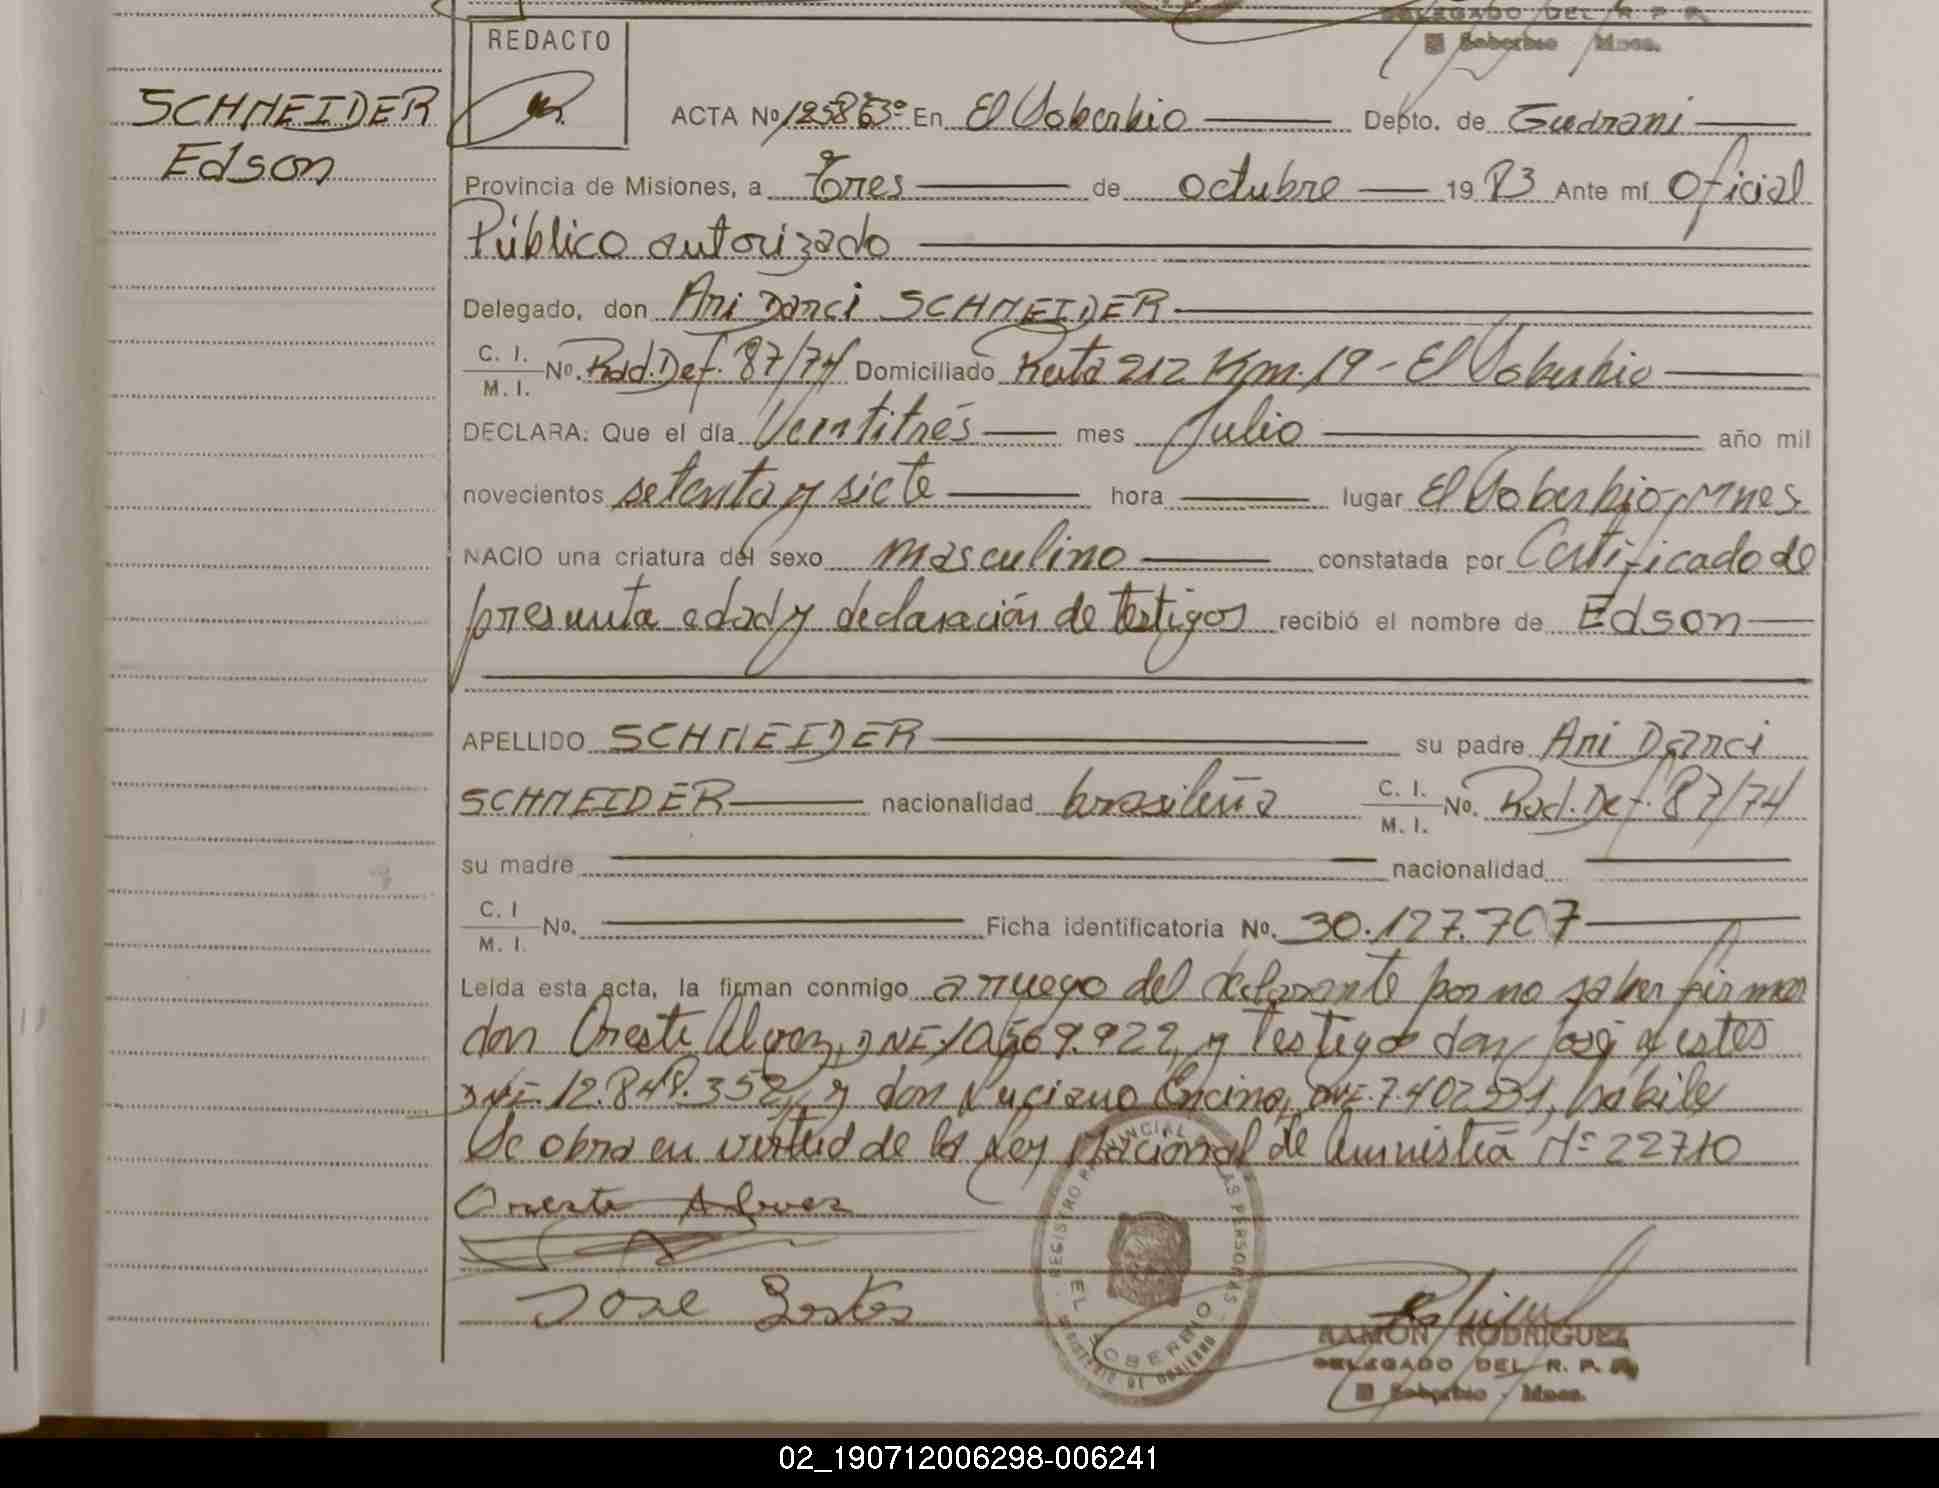 DELEGADO DEL R. P. P.
El Soberbio Mnes.
REDACTO
SCHNEIDER
Edson
ACTA No En El Soberbio Depto. de Guaraní
Provincia de Misiones, a Tres de octubre 19 83 Ante mí Oficial
Público autorizado
Delegado, don Ari Darci SCHNEIDER
C. I.
M. I. No. Rad. Def. 87/74 Domiciliado Ruta 212 Km. 19 - El Soberbio
DECLARA: Que el día Veintitrés mes Julio año mil
novecientos setenta y siete hora lugar El Soberbio, Mnes
NACIO una criatura del sexo masculino constatada por Certificado de
presunta edad y declaración de testigos recibió el nombre de Edson
APELLIDO SCHNEIDER su padre Ari Darci
SCHNEIDER nacionalidad brasileña C. I.
M. I. No. Rad. Def. 87/74
su madre nacionalidad
C. I
M. I. No. Ficha identificatoria No. 30.127.707
Leída esta acta, la firman conmigo a ruego del declarante por no saber firmar
don Oreste Alvez, DNI: 10.569.922, y testigos don José
DNI: 12.848.352, y don Luciano Encina, DNI: 7.402.531, hábiles
Se obra en virtud de la Ley Nacional de Amnistía Nº 22710
Oreste Alvez
Jose
REGISTRO PROVINCIAL DE LAS PERSONAS
EL SOBERBIO
MINISTERIO DE GOBIERNO
RAMON RODRIGUEZ
DELEGADO DEL R. P. P.
El Soberbio - Mnes.
02_190712006298-006241